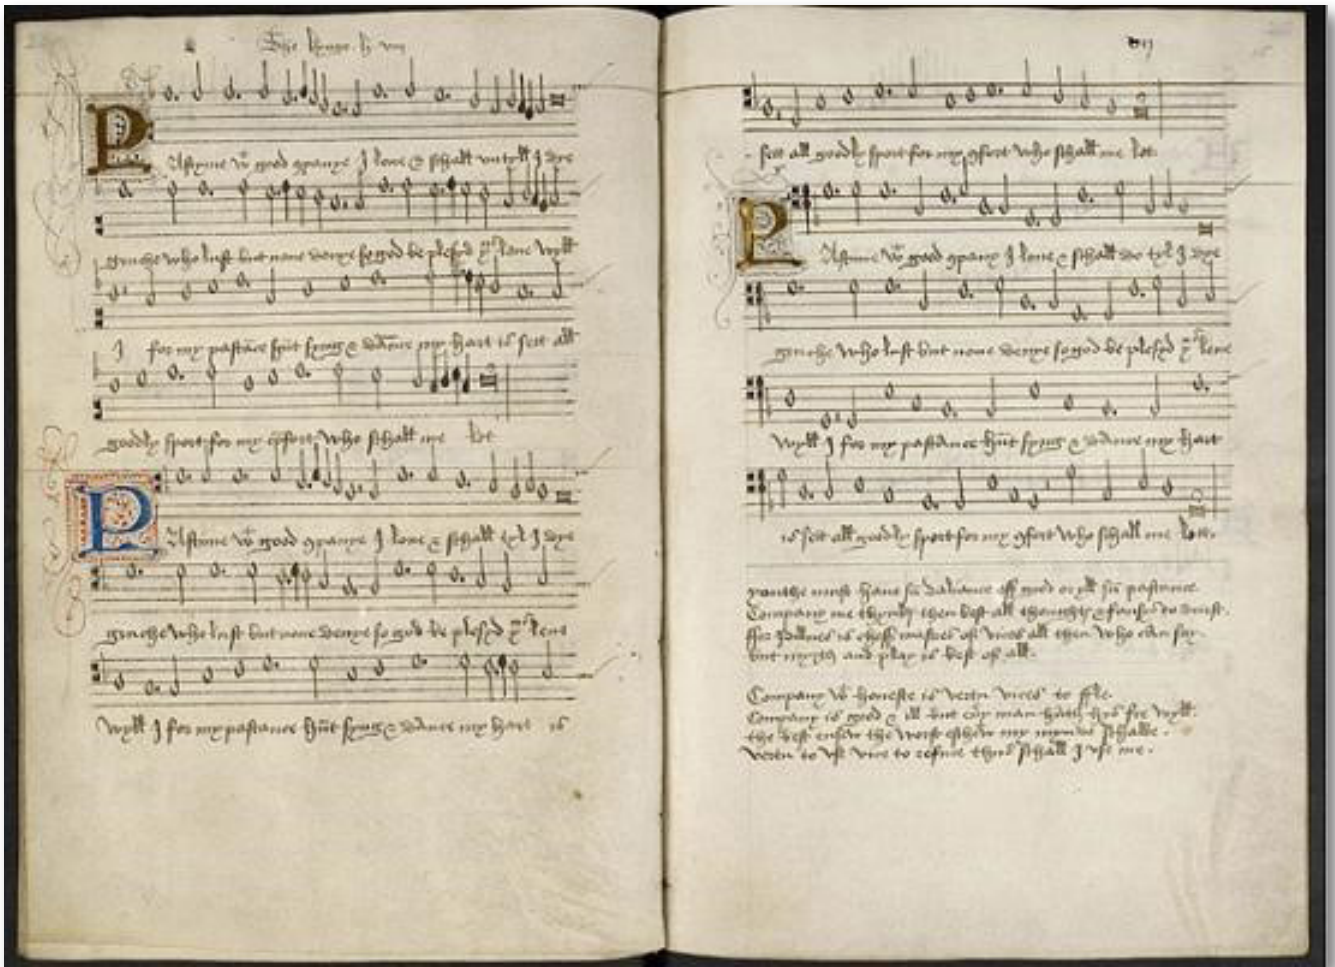 The kynge .h. viii
PAstyme wt good companye I love & schall untyll I dye
gruche who lust but none denye so god be plesyd yus leve wyll
I for my pastance hunt syng & dance my hart is sett all
goodly sport for my cofort who schall me let
PAstyme wt good companye I love & schall tyl I dye
gruche who lust but none denye so god be plesyd yus leve
wyll I for my pastance hunt syng & dance my hart is
sett all goodly sport for my cofort who schall me let
PAstime wt good company I love & schall tyl I dye
gruche who lust but none denye so god be plesyd yus leve
wyll I for my pastance hunt syng & dance my hart
is sett all goodly sport for my cofort who schall me lett.
youthe must have su daliance off good or yll su pastance.
Company me thynks then best all thoughts & fansys to deiest.
ffor Idillnes is cheff mastres of vices all then who can say.
but myrth and play is best of all.
Company wt honeste is vertu vices to ffle.
Company is good & ill but every man hath hys fre wyll.
the best ensew the worst eschew my mynde schalbe.
vertu to use vice to refuse thus schall I use me.